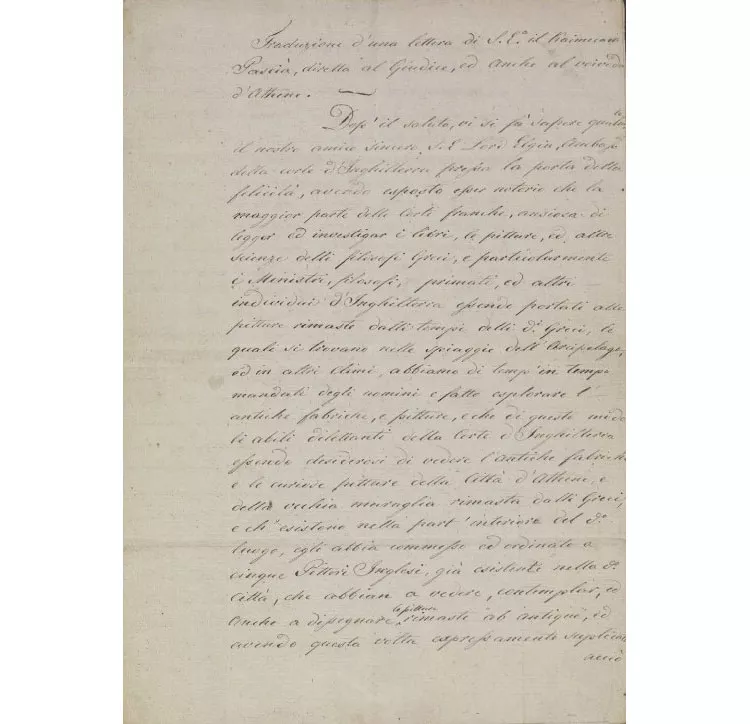 Traduzione d'una lettera di S. E.a il Caimacam
Pascià, diretta al Giudice, ed anche al Voivoda
d'Athene. —
Dopo il saluto, vi si fà sapere qualm.te
il nostro amico sincero S. E. Lord Elgin, Ambasc.
della corte d'Inghilterra presso la porta della
felicità, avendo esposto esser notorio che la
maggior parte delle Corti franche, ansiosa di
legger ed investigar i libri, le pitture, ed altre
scienze delli filosofi Greci, e particolarmente
i Ministri, filosofi, primati, ed altri
individui d'Inghilterra essendo portati alle
pitture rimaste dalli tempi delli d.i Greci, le
quali si trovano nelle spiaggie dell'Arcipelago,
ed in altri Climi, abbiamo di temp' in tempo
mandati degli uomini e fatto esplorare l'
antiche fabriche, e pitture, e che di questo modo
li abili dilettanti della Corte d'Inghilterra
essendo desiderosi di vedere l'antiche fabriche
e le curiose pitture della Città d'Athene, e
della vecchia muraglia rimasta dalli Greci,
e ch' esistono nella part' interiore del d.o
luogo, egli abbia commesso ed ordinato a
cinque Pittori Inglesi, già esistenti nella d.a
Città, che abbian a vedere, contemplar, ed
anche a disegnare, le pitture rimaste ab antiquo, ed
avendo questa volta espressamente supplicato
acciò